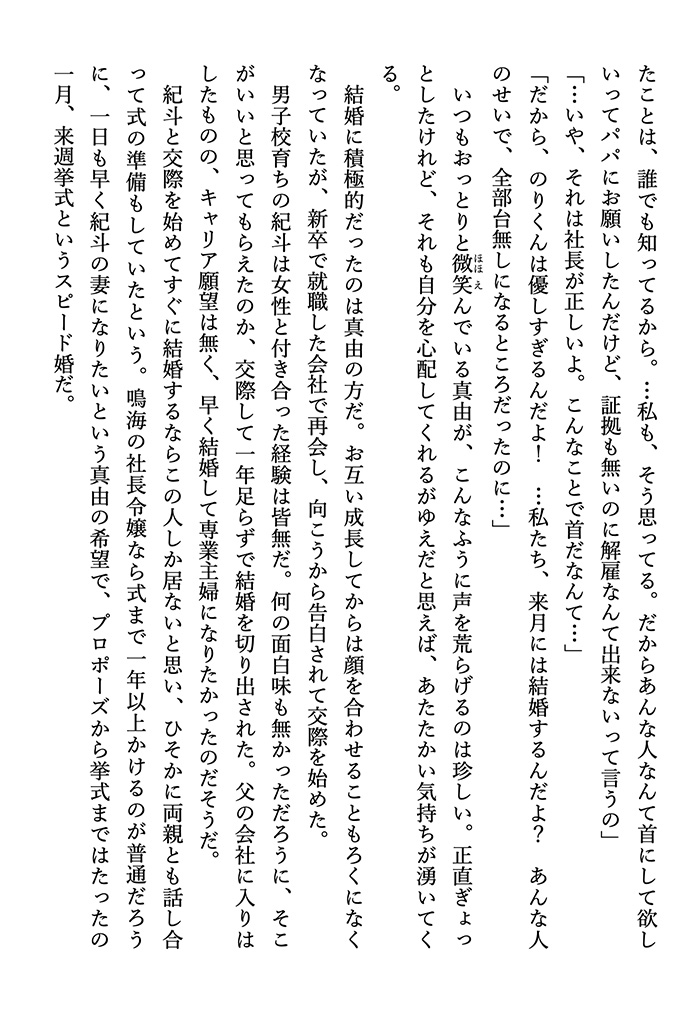 たことは、誰でも知ってるから。…私も、そう思ってる。だからあんな人なんて首にして欲し
いってパパにお願いしたんだけど、証拠も無いのに解雇なんて出来ないって言うの」
「…いや、それは社長が正しいよ。こんなことで首だなんて…」
「だから、のりくんは優しすぎるんだよ！　…私たち、来月には結婚するんだよ？　あんな人
のせいで、全部台無しになるところだったのに…」
　いつもおっとりと微笑んでいる真由が、こんなふうに声を荒らげるのは珍しい。正直ぎょっ
ほほえ
としたけれど、それも自分を心配してくれるがゆえだと思えば、あたたかい気持ちが湧いてく
る。
　結婚に積極的だったのは真由の方だ。お互い成長してからは顔を合わせることもろくになく
なっていたが、新卒で就職した会社で再会し、向こうから告白されて交際を始めた。
　男子校育ちの紀斗は女性と付き合った経験は皆無だ。何の面白味も無かっただろうに、そこ
がいいと思ってもらえたのか、交際して一年足らずで結婚を切り出された。父の会社に入りは
したものの、キャリア願望は無く、早く結婚して専業主婦になりたかったのだそうだ。
　紀斗と交際を始めてすぐに結婚するならこの人しか居ないと思い、ひそかに両親とも話し合
って式の準備もしていたという。鳴海の社長令嬢なら式まで一年以上かけるのが普通だろう
に、一日も早く紀斗の妻になりたいという真由の希望で、プロポーズから挙式まではたったの
一月、来週挙式というスピード婚だ。